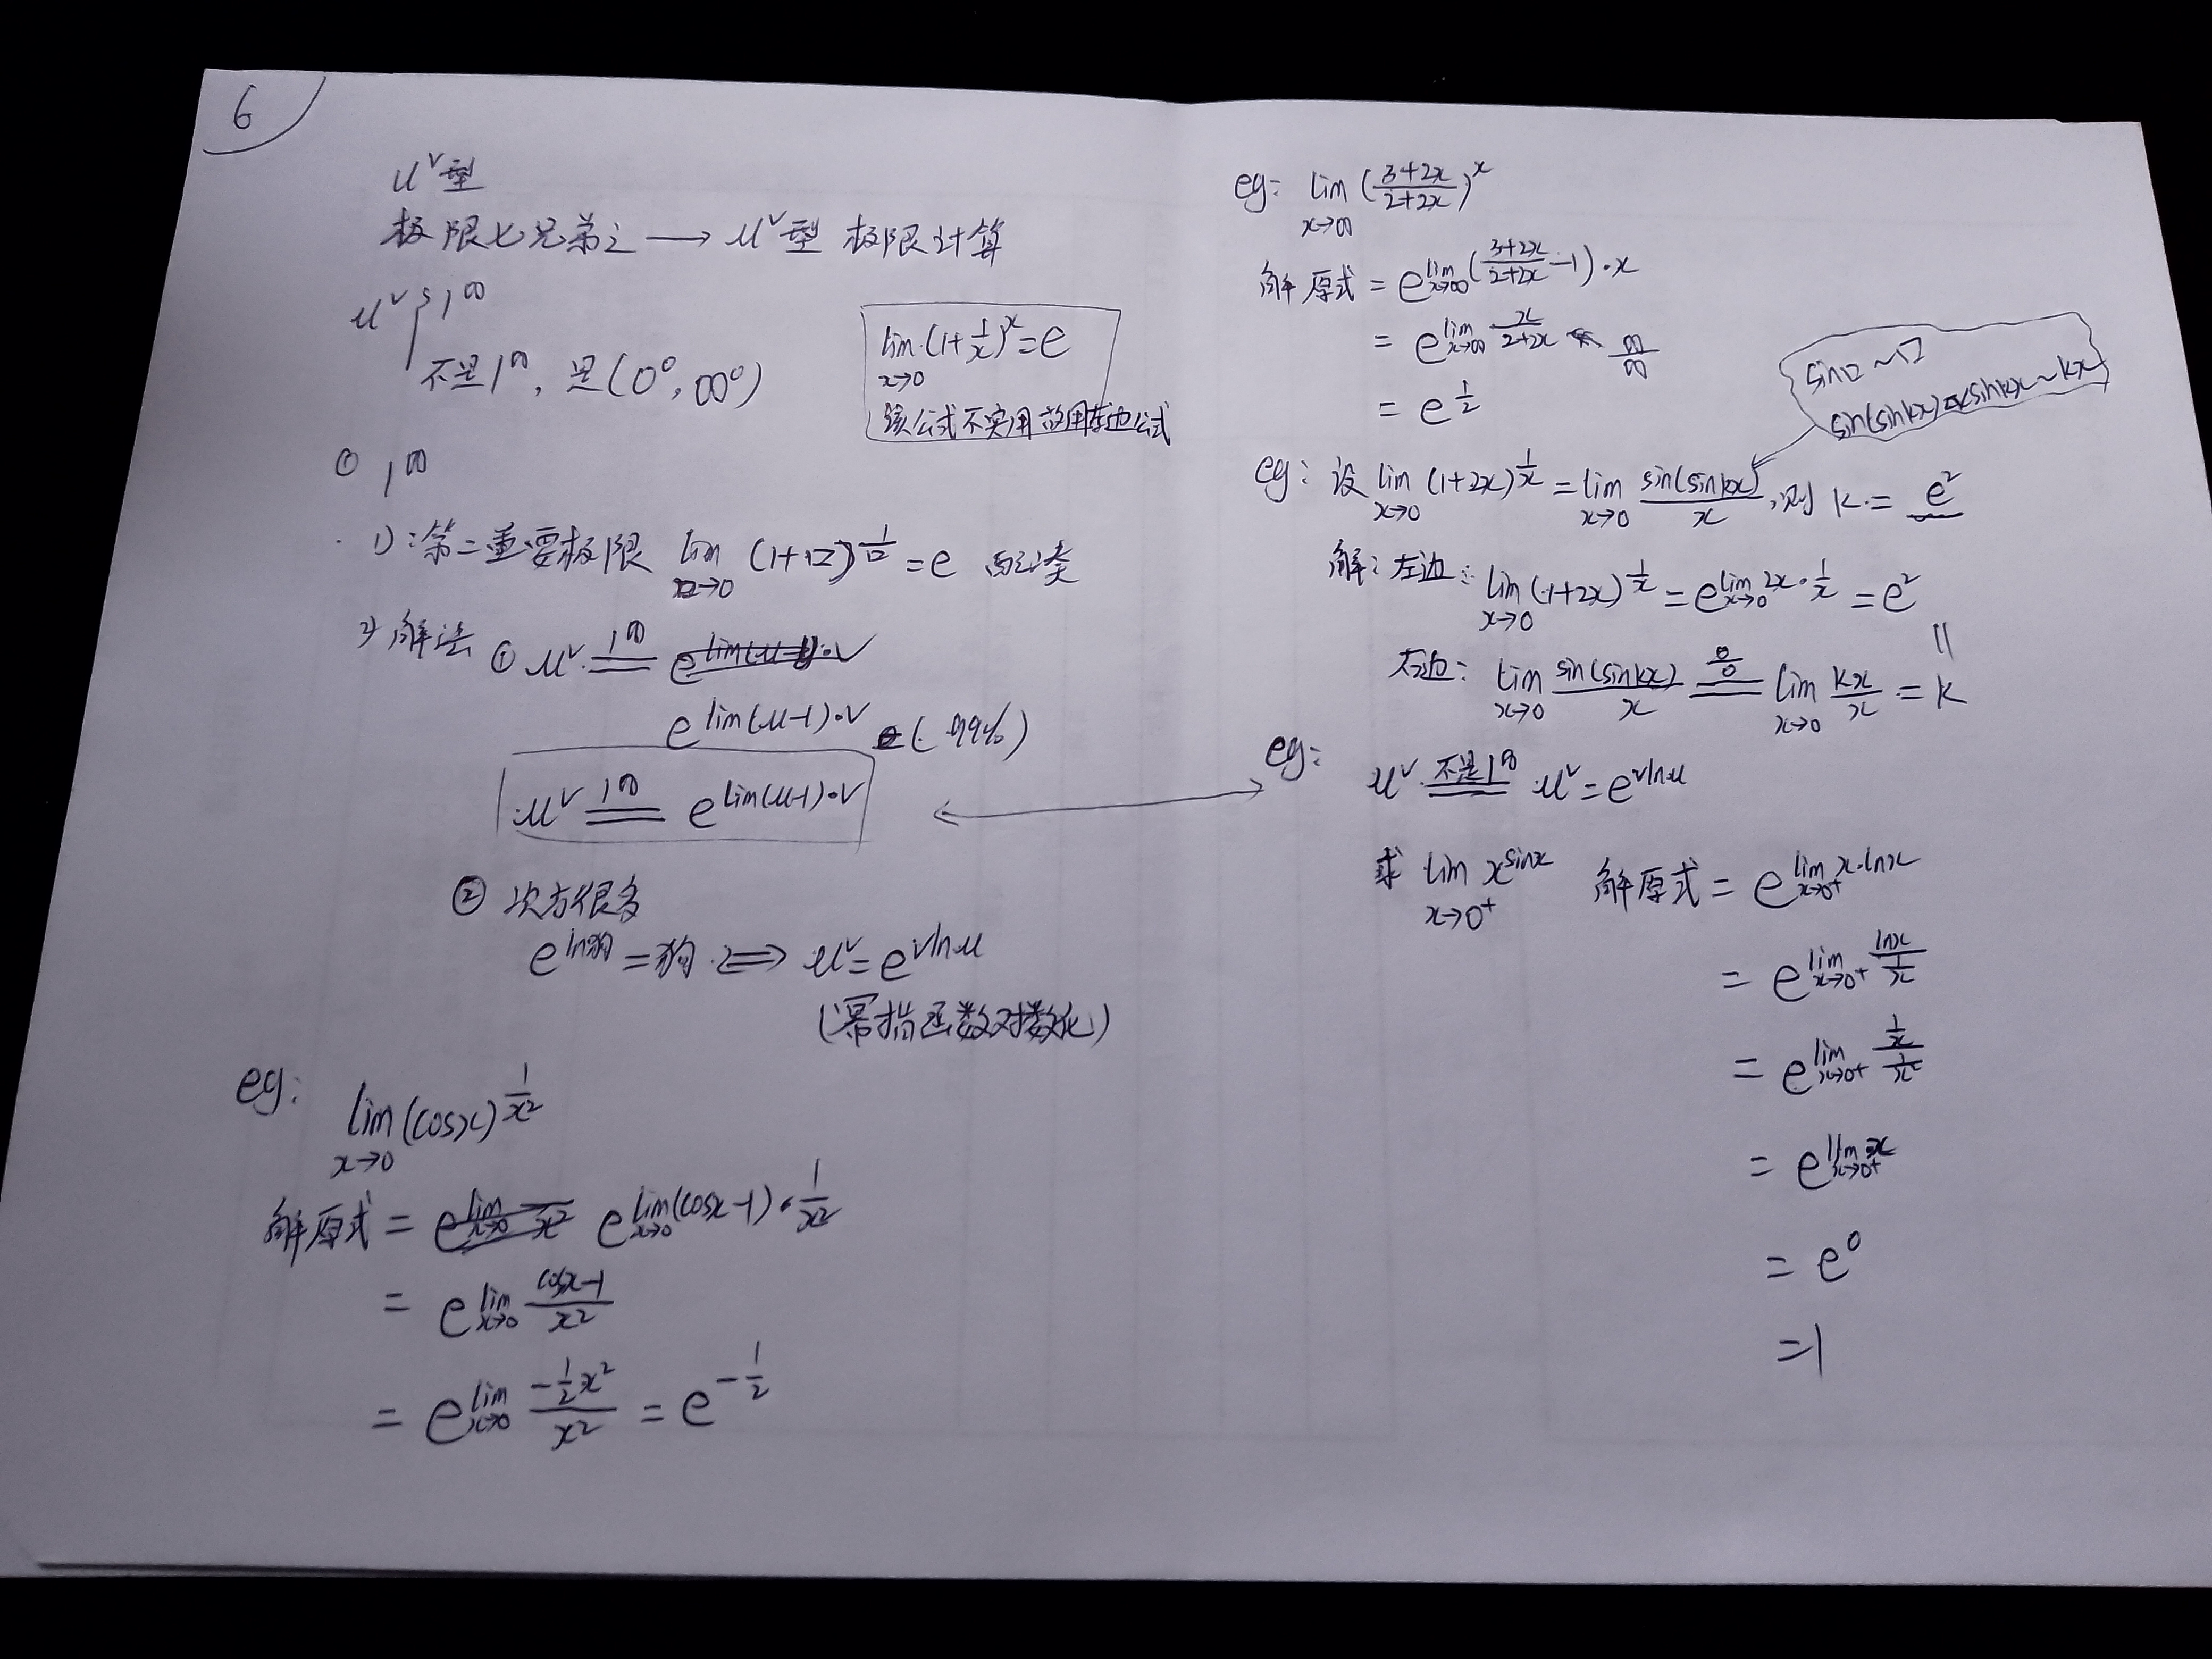 6
u^v型
极限七兄弟之 → u^v型 极限计算
u^v { 1^∞
不是1^∞, 是(0^0, ∞^0)
lim_{x→0} (1+1/x)^x = e
该公式不实用 故用左边公式
① 1^∞
1): 第二重要极限 lim_{□→0} (1+□)^{1/□} = e
2) 解法 ① u^v =(1^∞)= e^{lim(u-1)·v}
e^{lim(u-1)·v} (99%)
u^v =(1^∞)= e^{lim(u-1)·v}
② 次方很多
e^{ln狗} = 狗 ⟺ u^v = e^{vlnu}
(幂指函数对数化)
eg:
lim_{x→0} (cosx)^{1/x^2}
解原式 = e^{lim_{x→0} (cosx-1)·1/x^2}
= e^{lim_{x→0} (cosx-1)/x^2}
= e^{lim_{x→0} (-1/2 x^2)/x^2} = e^{-1/2}
eg: lim_{x→∞} ((3+2x)/(2+2x))^x
解原式 = e^{lim_{x→∞} ((3+2x)/(2+2x) -1)·x}
= e^{lim_{x→∞} x/(2+2x)} ∞/∞
= e^{1/2}
sin□ ~ □
sin(sinkx) ~ sinkx ~ kx
eg: 设 lim_{x→0} (1+2x)^{1/x} = lim_{x→0} sin(sinkx)/x, 则 k = e^2
解: 左边: lim_{x→0} (1+2x)^{1/x} = e^{lim_{x→0} 2x·1/x} = e^2
||
右边: lim_{x→0} sin(sinkx)/x =(0/0)= lim_{x→0} kx/x = k
eg:
u^v =(不是1^∞)= u^v = e^{vlnu}
求 lim_{x→0^+} x^{sinx} 解原式 = e^{lim_{x→0^+} x·lnx}
= e^{lim_{x→0^+} lnx/(1/x)}
= e^{lim_{x→0^+} (1/x)/(1/x^2)}
= e^{lim_{x→0^+} x}
= e^0
= 1